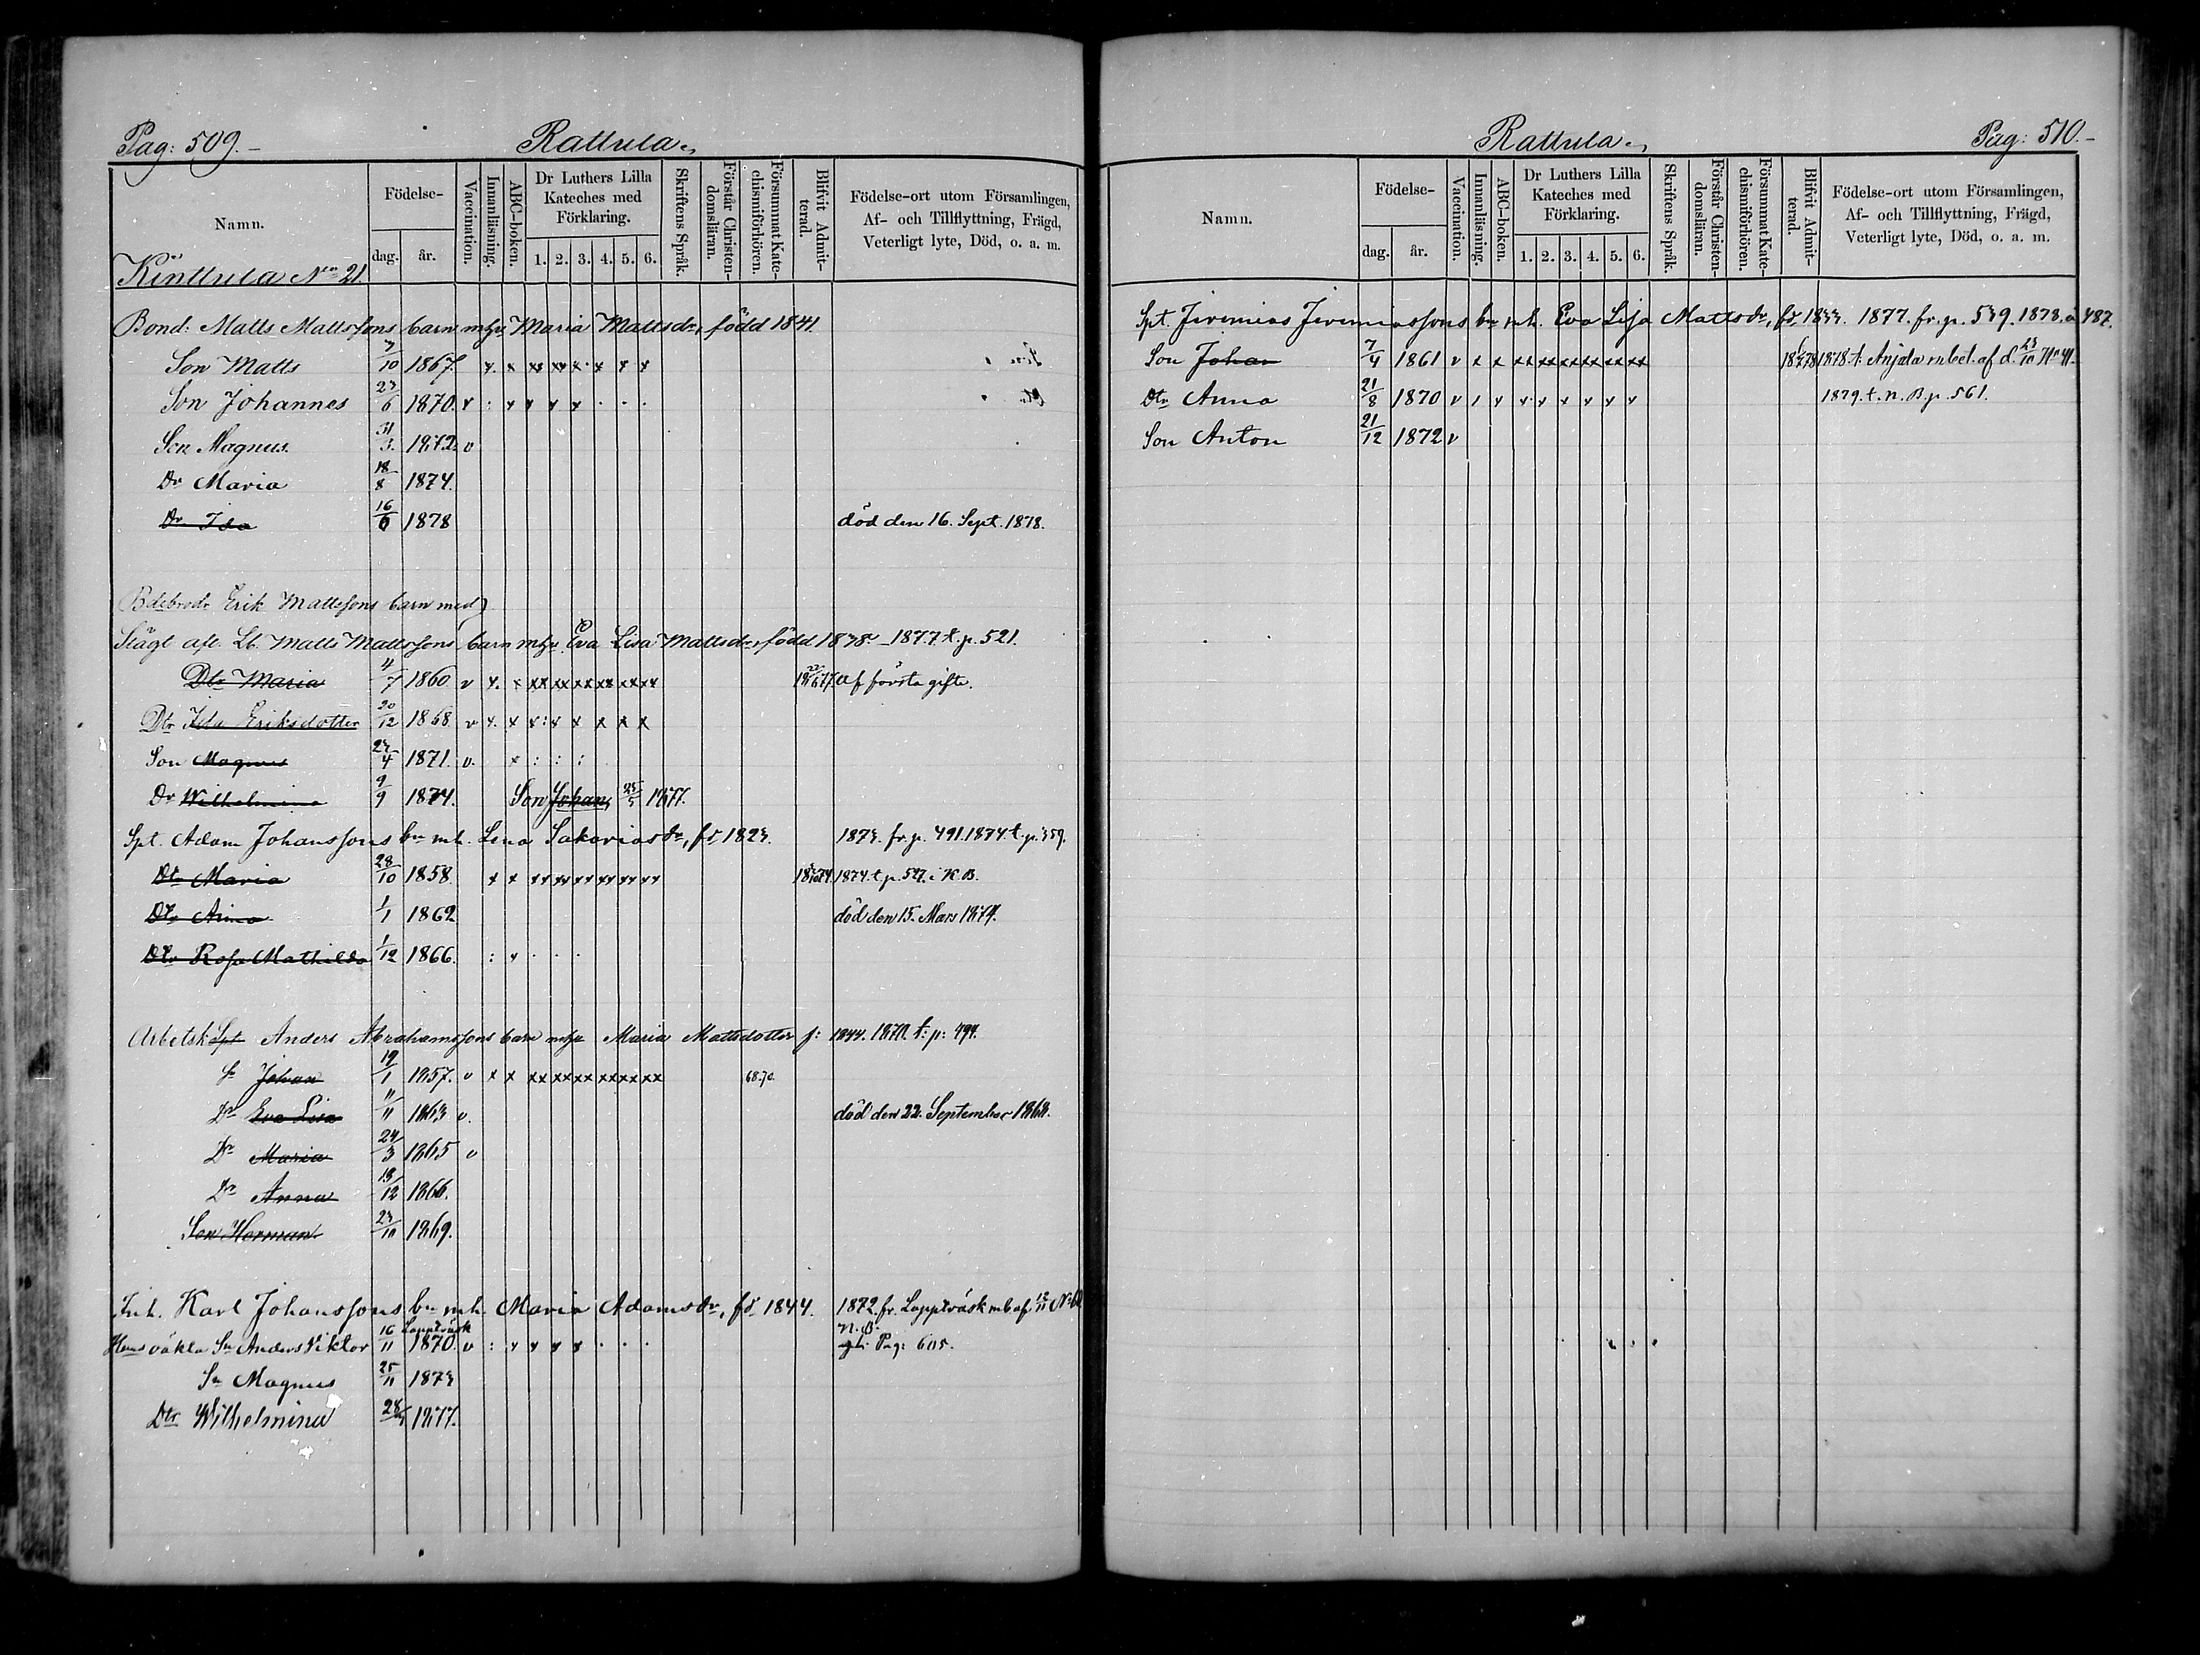 Pag: 509.
Rattula.
Namn.
Födelse-
dag. år.
Vaccination.
Innanläsning.
ABC-boken.
Dr Luthers Lilla Kateches med Förklaring.
1. 2. 3. 4. 5. 6.
Skriftens Språk.
Förstår Christendomsläran.
Försummat Katechismiförhören.
Blifvit Admitterad.
Födelse-ort utom Församlingen, Af- och Tillflyttning, Frägd, Veterligt lyte, Död, o. a. m.
Kinttula No 21.
Bond: Matts Mattssons barn mhu Maria Mattsdr, född 1841.
Son Matts 7/10 1867. x. x xx xx x. x x x
Son Johannes 23/6 1870. v : x x x x . . .
Son Magnus. 31/3. 1872. v
Dr Maria 18/8 1874.
Dr Ida 16/6 1878 död den 16. Sept. 1878.
Bdebrodr Erik Mattssons barn med
Slägt afl. Lb. Matts Mattssons barn mhu Eva Lisa Mattsdr, född 1838. 1877 t. p. 521.
Dtr Maria 4/7 1860 v x. x xx xx xx xx xx xx af första gifte.
Dtr Ida Eriksdotter 20/12 1868 v x. x x : x x x x x
Son Magnus 23/4 1871. v. x : : :
Dr Wilhelmina 9/9 1874. Son Johan, 23/5 1877.
Spt. Adam Johanssons bn mh. Lena Sakariasdr, fd 1823. 1873. fr. p. 491. 1874. t. p. 359.
Dtr Maria 28/10 1858. x x xx xx xx xx xx xx 1874. t. p. 527. i K. B.
Dtr Anna 1/1 1862 död den 15. Mars 1874.
Dtr Rosa Mathilda 1/12 1866. : x . . .
Arbetsk Spt Anders Abrahamssons barn mhu Maria Mattsdotter f: 1844. 1870. t: p: 494.
Sn Johan 19/1 1857. v x x xx xx xx xx xx xx 68.70.
Dr Eva Lisa 11/11 1863 v. död den 22. September 1868.
Dr Maria 24/3 1865 v
Dr Anna 13/12 1866.
Son Herman 23/10 1869.
Inh. Karl Johanssons bn mh. Maria Adamsdr, fd 1844. 1872. fr. Lappträsk mb af 12/11
Lappträsk
Sn Anders Viktor 16/11 1870. v : x x x x . . . N. B. Pag: 605.
Sn Magnus 25/11 1873
Dtr Wilhelmina 28 1877.
Rattula.
Pag: 510.
Namn.
Födelse-
dag. år.
Vaccination.
Innanläsning.
ABC-boken.
Dr Luthers Lilla Kateches med Förklaring.
1. 2. 3. 4. 5. 6.
Skriftens Språk.
Förstår Christendomsläran.
Försummat Katechismiförhören.
Blifvit Admitterad.
Födelse-ort utom Församlingen, Af- och Tillflyttning, Frägd, Veterligt lyte, Död, o. a. m.
Spt. Jeremias Jeremiassons bn mh. Eva Lisa Mattsdr, fd 1833. 1877. fr. p. 539. 1878. å 487.
Son Johan 7/4 1861 v x x xx xx xx xx xx xx 1878 t. Anjala m. bet. af d. 23/10 No 41.
Dtr Anna 21/8 1870 v x x x x x x x 1879. t. N. B. p. 561.
Son Anton 21/12 1872 v